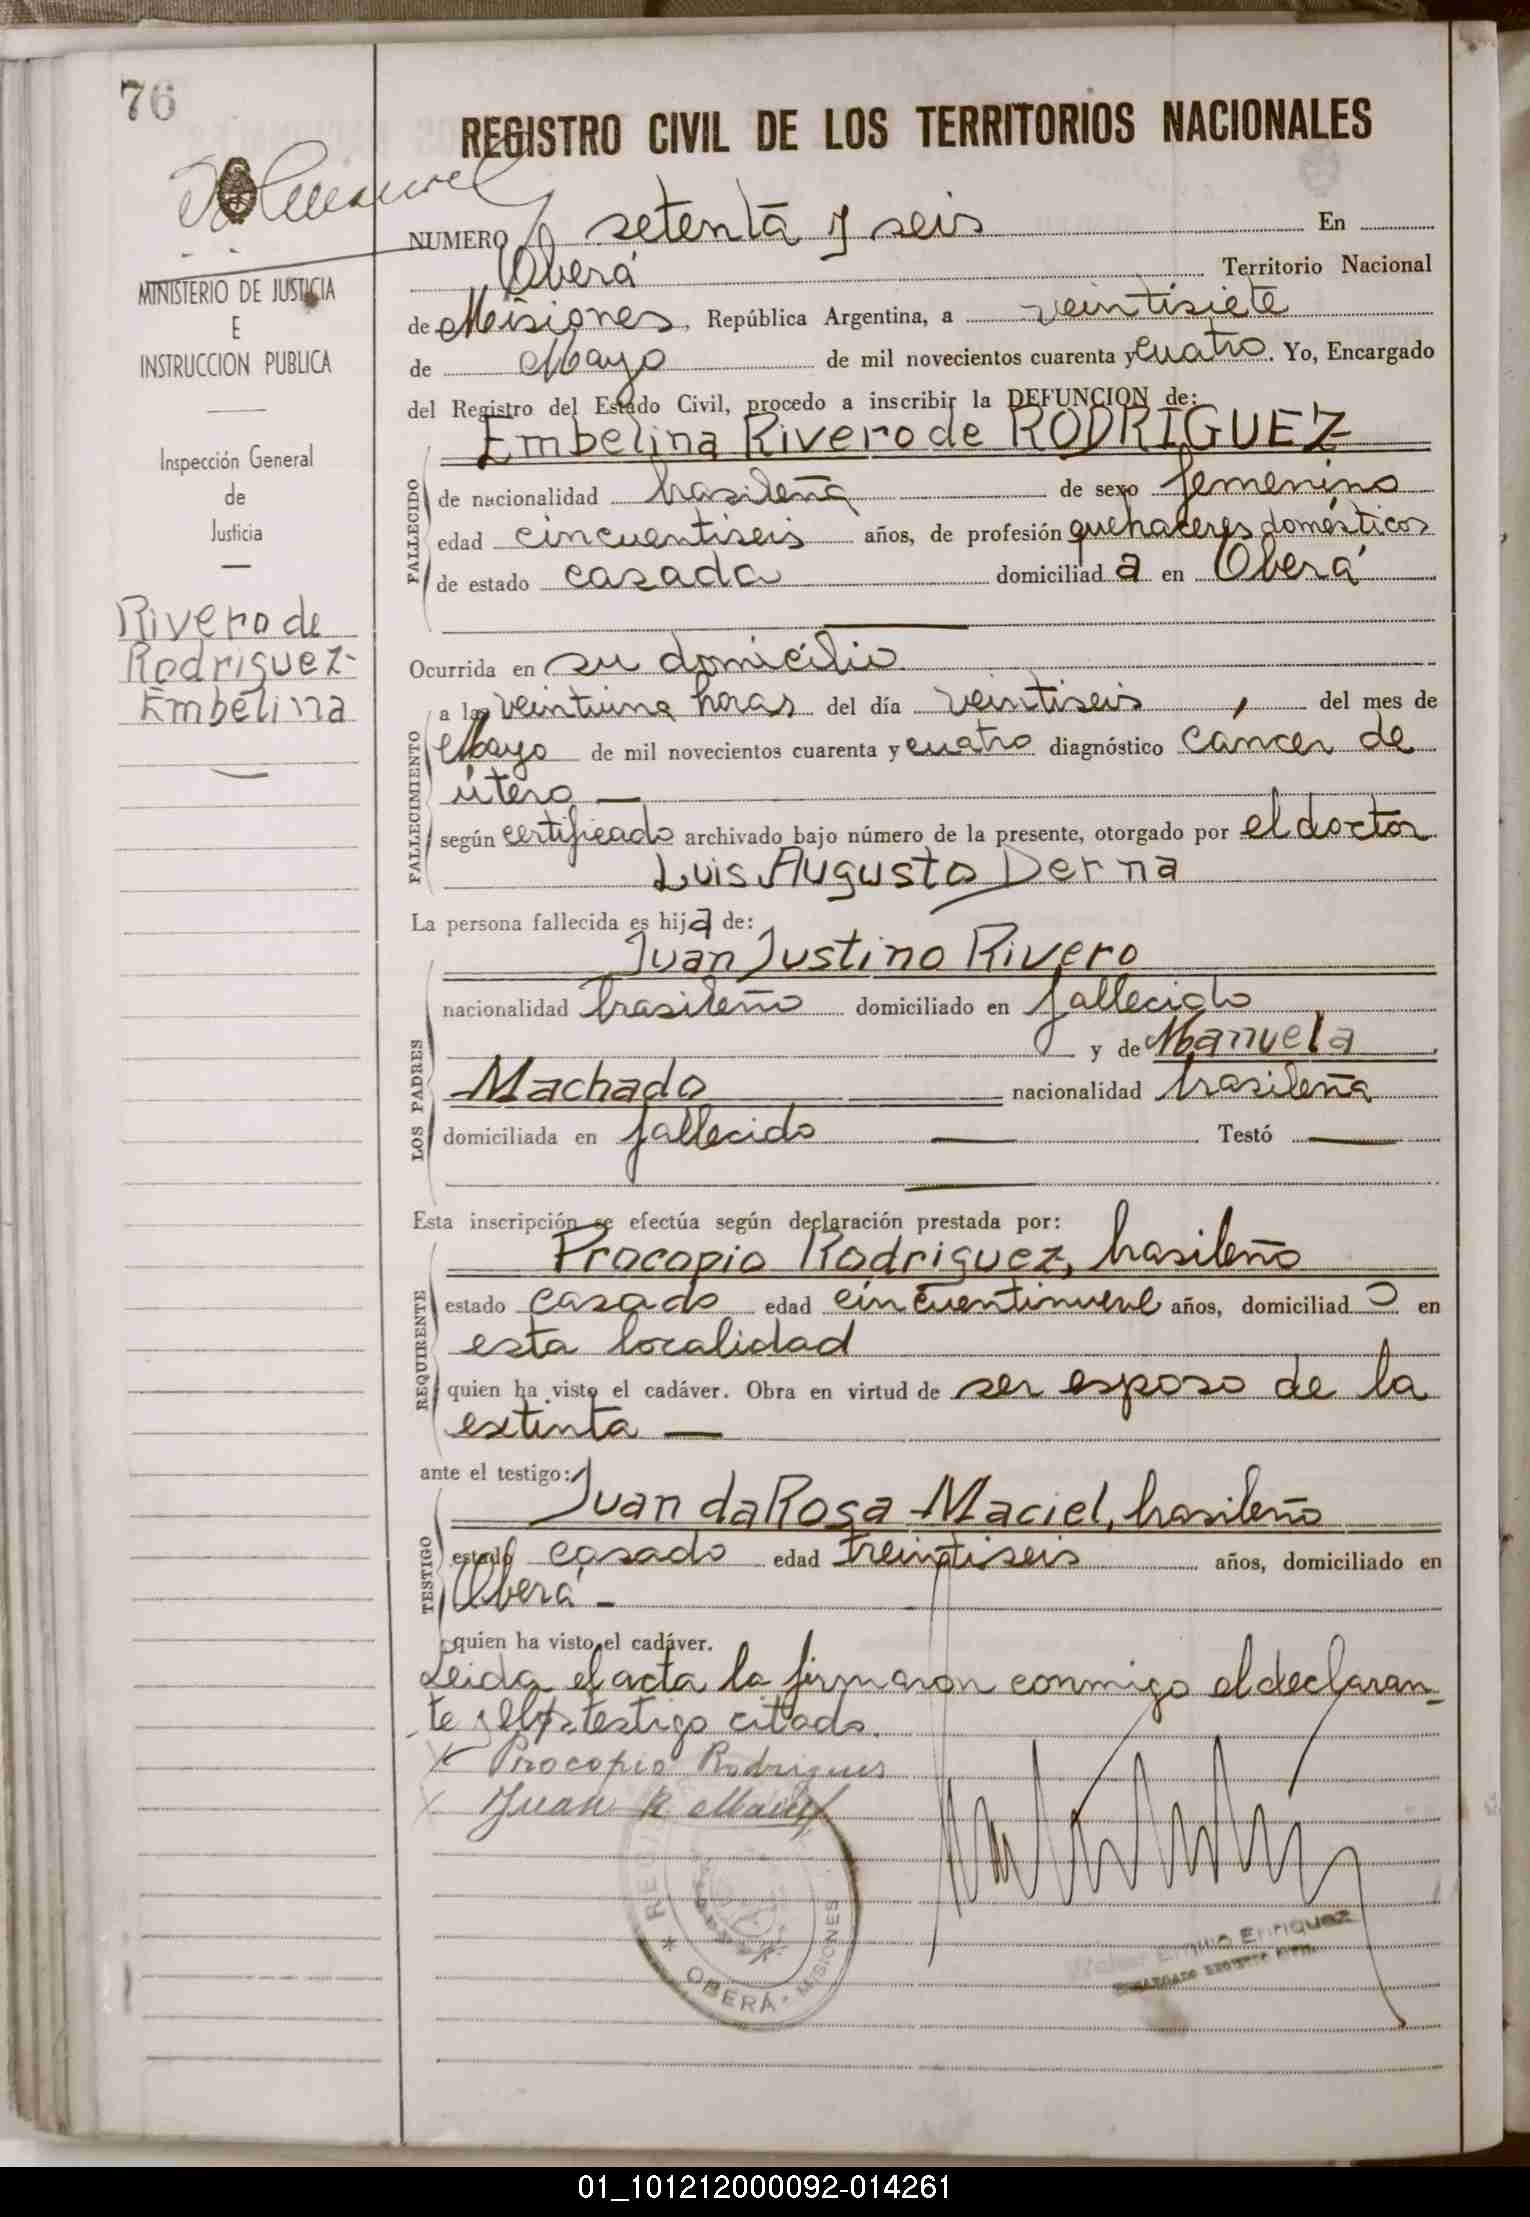 76
REGISTRO CIVIL DE LOS TERRITORIOS NACIONALES
NUMERO setenta y seis En
Oberá Territorio Nacional
de Misiones, República Argentina, a veintisiete
de Mayo de mil novecientos cuarenta y cuatro. Yo, Encargado
del Registro del Estado Civil, procedo a inscribir la DEFUNCION de:
Embelina Rivero de RODRIGUEZ
FALLECIDO
de nacionalidad brasileña de sexo femenino
edad cincuentiseis años, de profesión quehaceres domésticos
de estado casada domiciliad a en Oberá
Ocurrida en su domicilio
FALLECIMIENTO
a las veintiuna horas del día veintiseis, del mes de
Mayo de mil novecientos cuarenta y cuatro diagnóstico cáncer de
útero —
según certificado archivado bajo número de la presente, otorgado por el doctor
Luis Augusto Derna
La persona fallecida es hija de:
LOS PADRES
Juan Justino Rivero
nacionalidad brasileño domiciliado en fallecido
y de Manuela
Machado nacionalidad brasileña
domiciliada en fallecido — Testó —
Esta inscripción se efectúa según declaración prestada por:
REQUIRENTE
Procopio Rodriguez, brasileño
estado casado edad cincuentinueve años, domiciliad o en
esta localidad
quien ha visto el cadáver. Obra en virtud de ser esposo de la
extinta —
ante el testigo:
TESTIGO
Juan da Rosa Maciel, brasileño
estado casado edad treintiseis años, domiciliado en
Oberá -
quien ha visto el cadáver.
Leida el acta la firmaron conmigo el declaran-
te y el testigo citado.
x Procopio Rodrigues
x Juan R Maciel
REGI
OBERÁ · MISIONES
Emilio Enriquez
ENCARGADO REGISTRO CIVIL
MINISTERIO DE JUSTICIA
E
INSTRUCCION PUBLICA
Inspección General
de
Justicia
Rivero de
Rodriguez-
Embelina
01_101212000092-014261